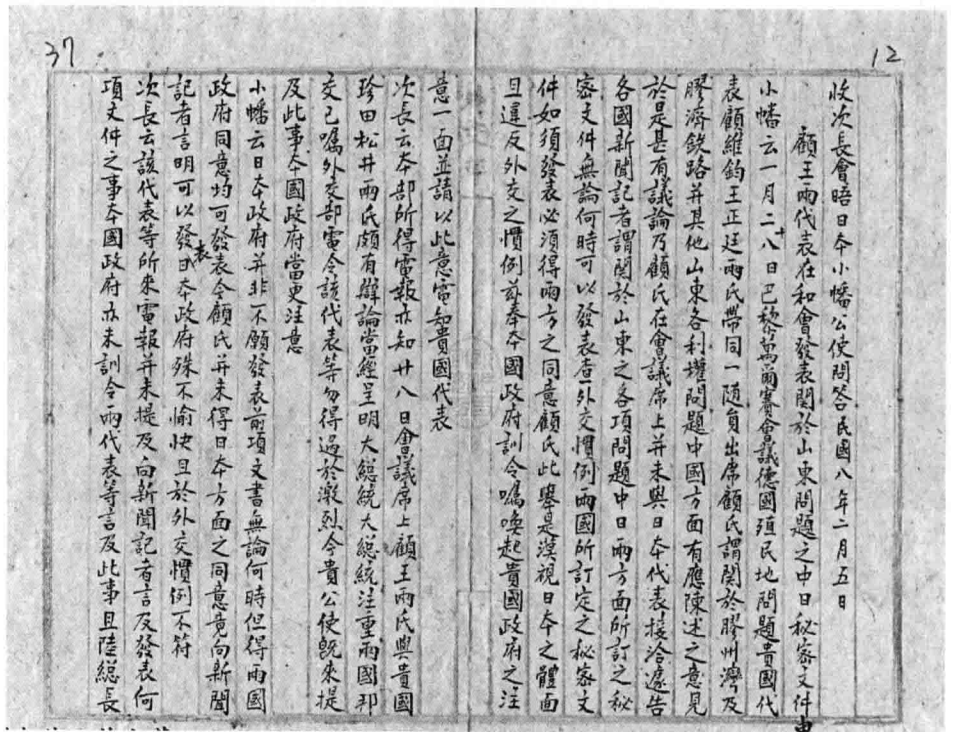 12
收次長會晤日本小幡公使問答民國八年二月五日
顧王兩代表在和會發表関於山東問題之中日秘密文件由
小幡云一月二十八日巴黎萬爾賽會議德國殖民地問題貴國代
表顧維鈞王正廷兩氏帶同一随員出席顧氏謂関於膠州灣及
膠濟鉄路并其他山東各利權問題中國方面有應陳述之意見
於是甚有議論乃顧氏在會議席上并未與日本代表接洽遽告
各國新聞記者謂関於山東之各項問題中日兩方面所訂之秘
密文件無論何時可以發表查外交慣例兩國所訂定之秘密文
件如須發表必須得兩方之同意顧氏此舉是漠視日本之體面
且違反外交之慣例茲奉本國政府訓令囑喚起貴國政府之注
意一面並請以此意電知貴國代表
次長云本部所得電報亦知廿八日會議席上顧王兩氏與貴國
珍田松井兩氏頗有辯論當經呈明大総統大総統注重兩國邦
交已囑外交部電令該代表等勿得過於激烈今貴公使既來提
及此事本國政府當更注意
小幡云日本政府并非不願發表前項文書無論何時但得兩國
政府同意均可發表今顧氏并未得日本方面之同意竟向新聞
記者言明可以發表日本政府殊不愉快且於外交慣例不符
次長云該代表等所來電報并未提及向新聞記者言及發表何
項文件之事本國政府亦未訓令兩代表等言及此事且陸総長
37